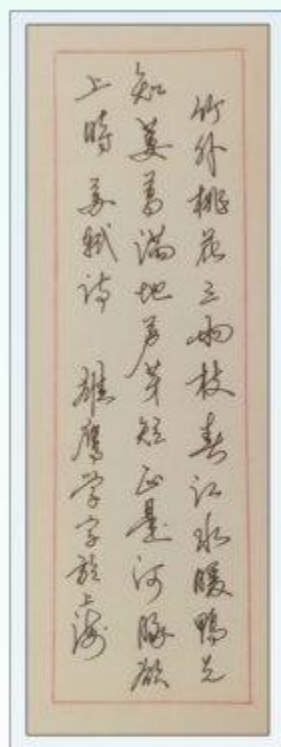 竹外桃花三两枝春江水暖鸭先
知蒌蒿满地芦芽短正是河豚欲
上时 苏轼诗 雄鹰学字于上海